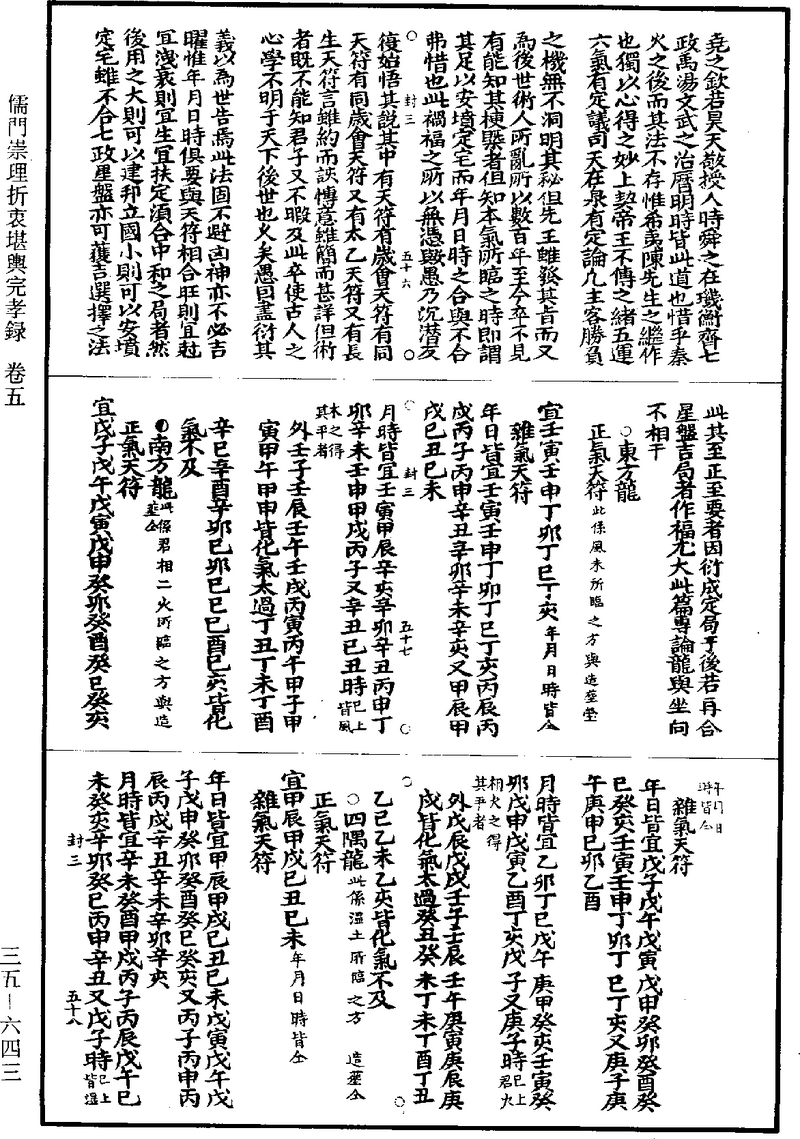 堯之欽若昊天敬授人時舜之在璣衡齊七
政禹湯文武之治曆明時皆此道也惜乎秦
火之後而其法不存惟希夷陳先生之繼作
也獨以心得之妙上契帝王不傳之緒五運
六氣有定議司天在泉有定論九主客勝負
之機無不洞明其秘但先王雖發其肯而又
為後世術人所亂所以數百年至今卒不見
有能知其梗槩者但知本氣所臨之時即謂
其足以安墳定宅而年月日時之合與不合
弗惜也此禍福之所以無憑歟愚乃沉潜反
封三 五十六
復始悟其說其中有天符有歲會天符有同
天符有同歲會天符又有太乙天符又有長
生天符言雖約而該愽意雖簡而甚詳但術
者既不能知君子又不暇及此卒使古人之
心學不明于天下後世也久矣愚因畫衍其
義以為世告焉此法固不避凶神亦不必吉
曜惟年月日時俱要與天符相合旺則宜尅
宜洩衰則宜生宜扶定須合中和之局者然
後用之大則可以建邦立國小則可以安墳
定宅雖不合七政星盤亦可獲吉選擇之法
此其至正至要者因衍成定局于後若再合
星盤吉局者作福尤大此篇專論龍與坐向
不相干
○東方龍
正氣天符此係風木所臨之方與造塟塋
宜壬寅壬申丁卯丁巳丁亥年月日時皆仝
雜氣天符
年日皆宜壬寅壬申丁卯丁巳丁亥丙辰丙
戌丙子丙申辛丑辛卯辛未辛亥又甲辰甲
戌己丑己未
封三 五十七
月時皆宜壬寅甲辰辛亥辛卯辛丑丙申丁
卯辛未壬申甲戌丙子又辛丑己丑時巳上皆風
木之得其平者
外壬子壬辰壬午壬戌丙寅丙午甲子甲
寅甲午甲申皆化氣太過丁丑丁未丁酉
辛巳辛酉辛卯巳卯巳巳巳酉巳亥皆化
氣不及
●南方龍此係君相二火所臨之方與造塟仝
正氣天符
宜戊子戊午戊寅戊申癸卯癸酉癸巳癸亥
年月日時皆仝
雜氣天符
年日皆宜戊子戊午戊寅戊申癸卯癸酉癸
巳癸亥壬寅壬申丁卯丁巳丁亥又庚子庚
午庚申巳卯乙酉
月時皆宜乙卯丁巳戊午庚申癸亥壬寅癸
卯戊申戊寅乙酉丁亥戊子又庚子時巳上君火
相火之得其平者
外戊辰戊戌壬子壬辰壬午庚寅庚辰庚
戌皆化氣太過癸丑癸未丁未丁酉丁丑
乙巳乙未乙亥皆化氣不及
○四隅龍此係溫土所臨之方 造塟仝
正氣天符
宜甲辰甲戌巳丑巳未年月日時皆仝
雜氣天符
年日皆宜甲辰甲戌巳丑巳未戊寅戊午戊
子戊申癸卯癸酉癸巳癸亥又丙子丙申丙
辰丙戌辛丑辛未辛卯辛亥
月時皆宜辛未癸酉甲戌丙子丙辰戊午巳
未癸亥辛卯癸巳丙申辛丑又戊子時巳上皆溫
封三 五十八
儒門崇理折衷堪輿完孝録 卷五
三五－六四三